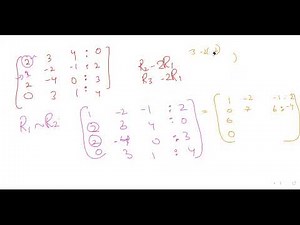 2 3 4 : 0
-2 -1 : 2
2 -4 0 : 3
0 3 1 : 4
R2 - 2R1
R3 - 2R1
R1 ~ R2
1 -2 -1 : 2
2 3 4 : 0
2 -4 0 : 3
0 3 1 : 4
=
1 -2 -1 - 2
0 7 6 : -4
0
0